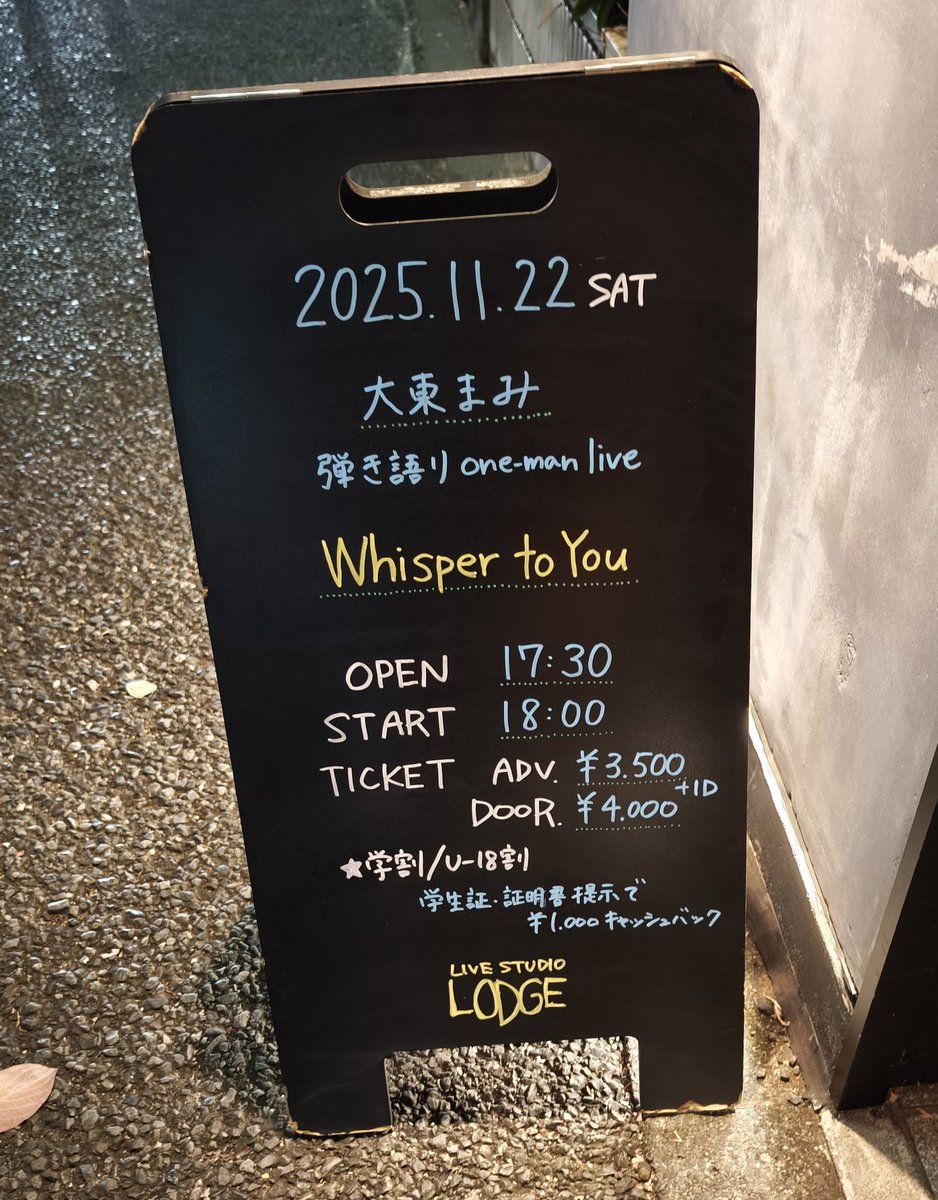 2025.11.22 SAT
大東まみ
弾き語り one-man live
Whisper to You
OPEN 17:30
START 18:00
TICKET ADV. ¥3.500
+1D
DOOR. ¥4.000
★学割/U-18割
学生証・証明書提示で
¥1.000キャッシュバック
LIVE STUDIO
LODGE